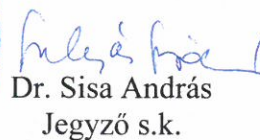 Dr. Sisa András
Jegyző s.k.